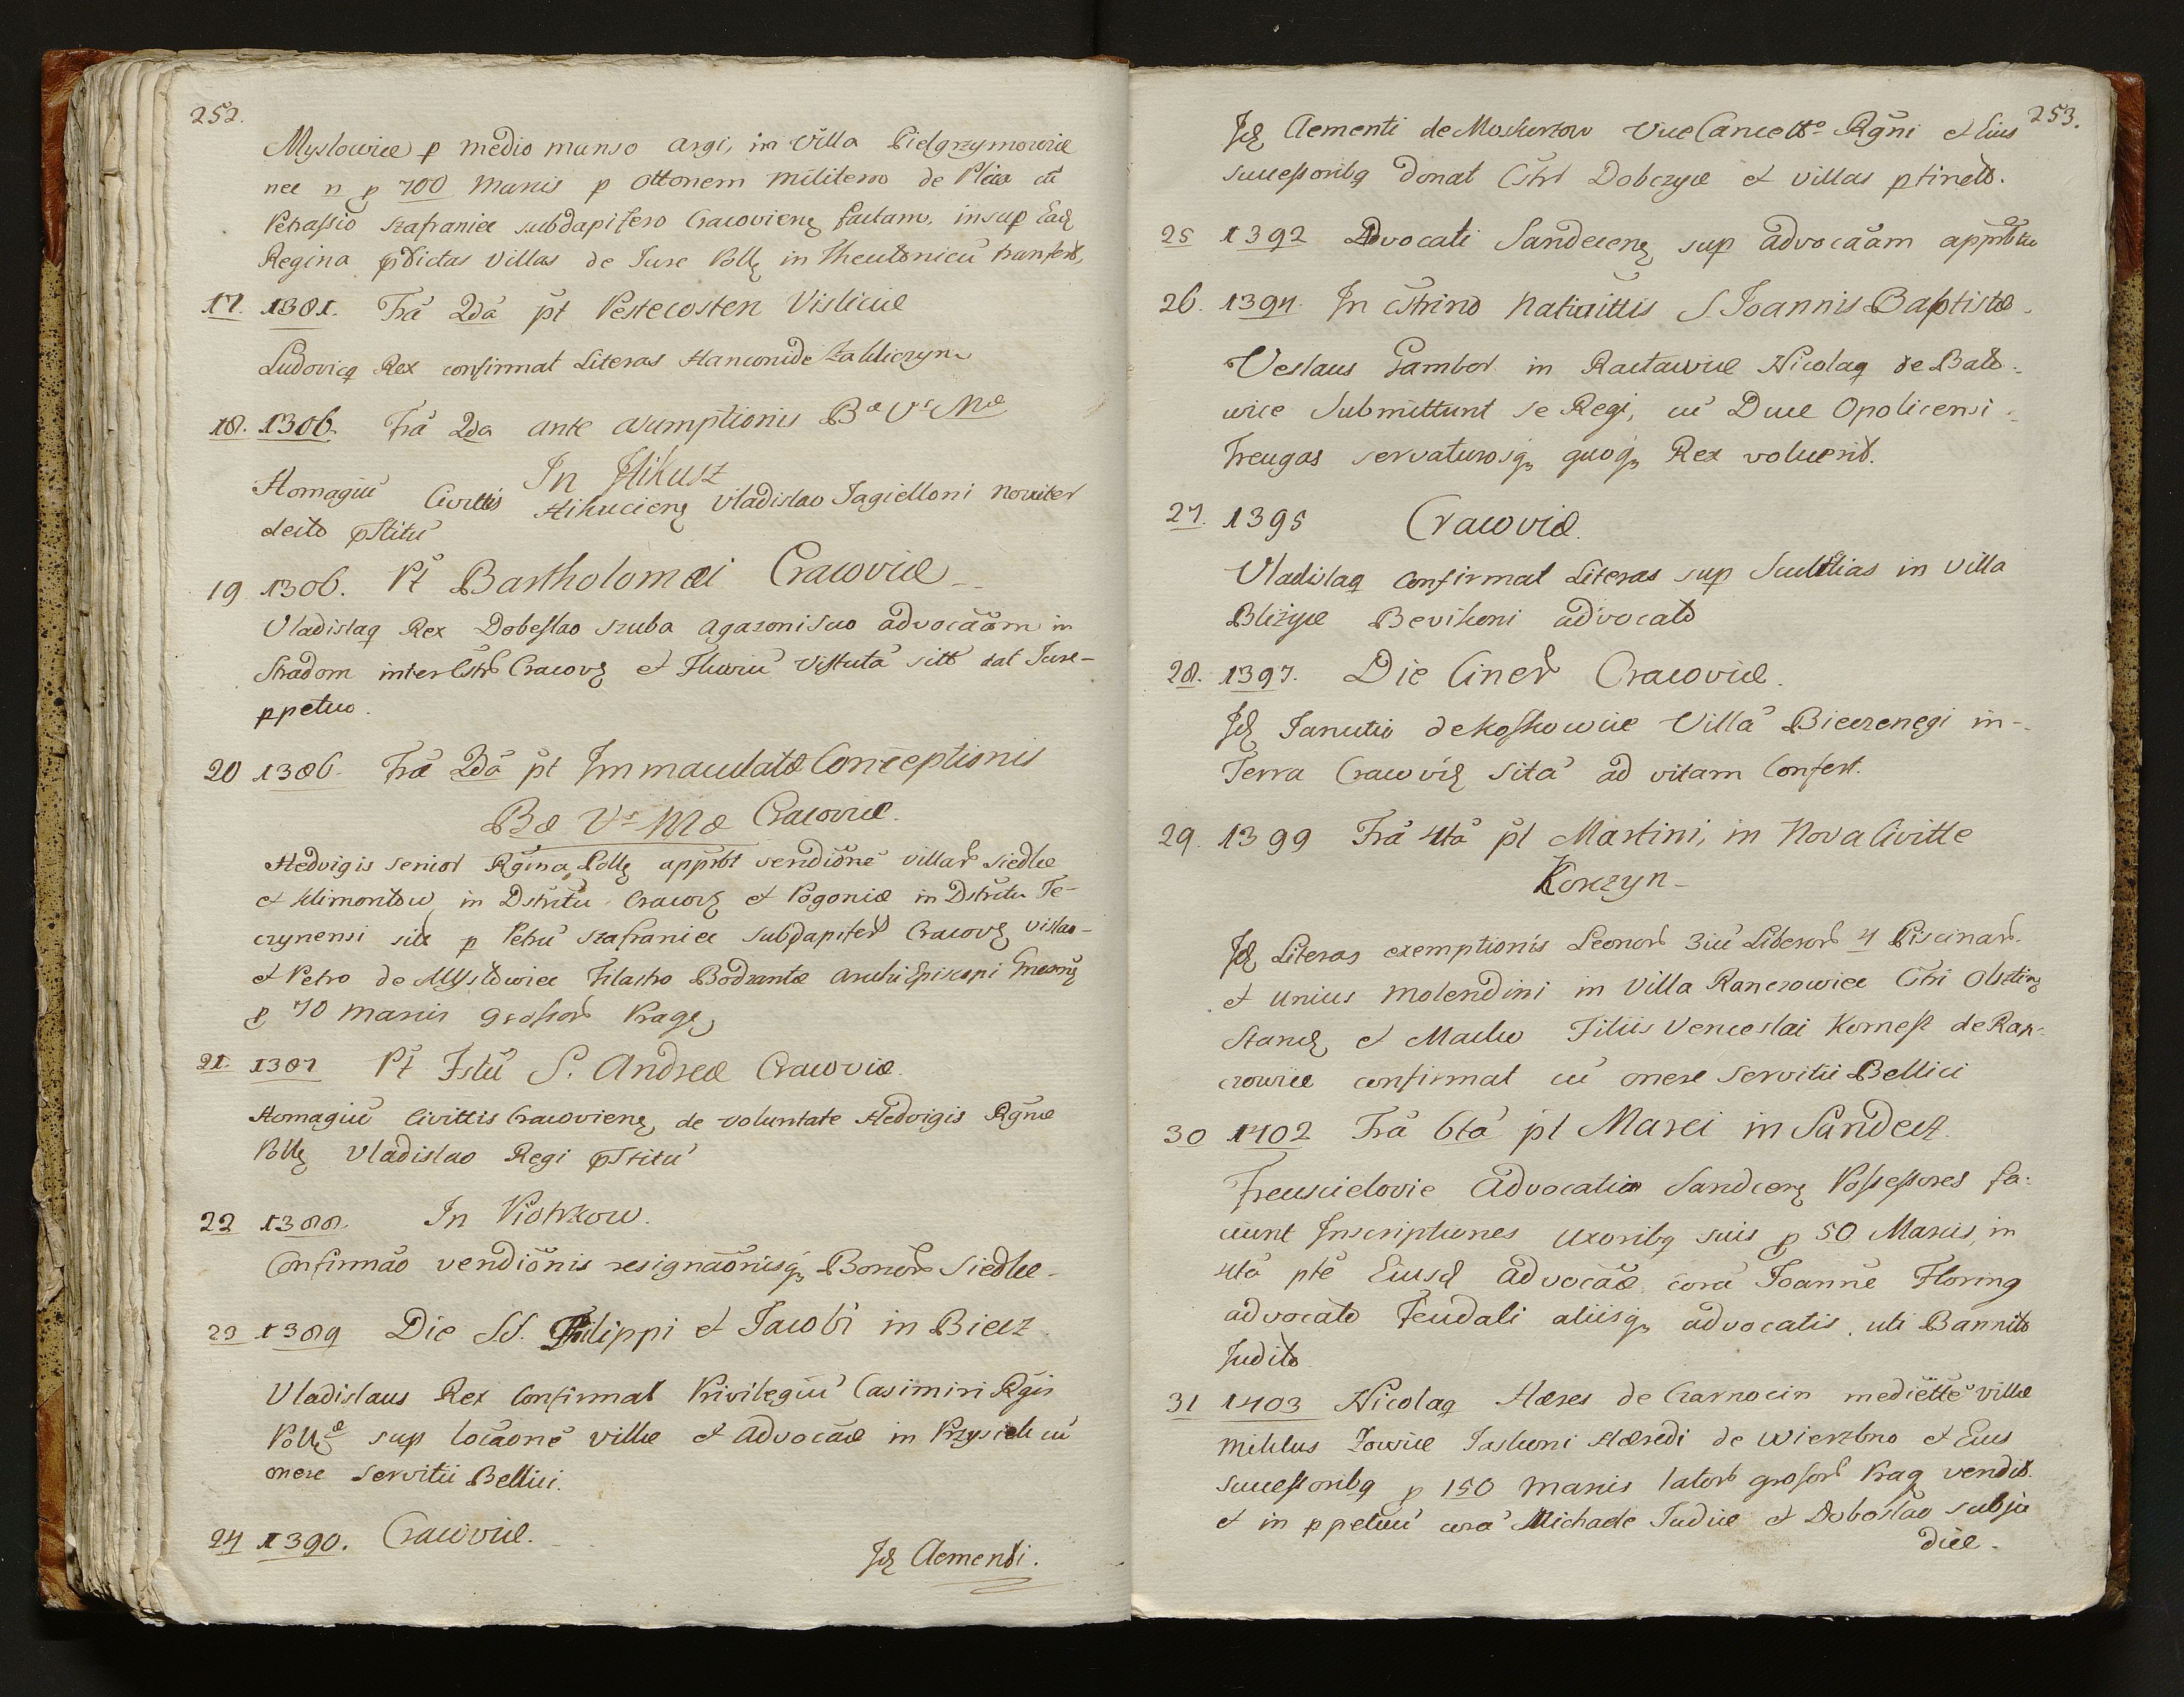 252.
Myslowice p medio manso argi, in Villa Pielgrzymowice
nec n p 700 Marcis p Ottonem militem de Plica cū
Petrassio Szafraniec subdapifero Cracovienę factam, insup Eadę
Regina pdictas Villas de Jure Pollę in Theutonicū transfert,
17. 1381. Frā 2dā pt Pestecosten Visliciæ
Ludovicq Rex confirmat Literas Hanconi de Zakliczyn
18. 1386. Frā 2da ante assumptionis Bæ Vs Mæ
In Ilkusz
Homagiū Civittis Hikucienę Vladislao Jagielloni noviter
lecto pstitū
19 1386. Pt Bartholomæi Cracoviæ
Vladislaq Rex Dobeslao Szuba agazoni suo advocāam in
Stradom inter Cstr Cracovę et Fluviū Vistutā sitt dat Jure-
ppetuo.
20 1386. Fræ 2dā pt Immaculatæ Conceptionis
Bæ Vs Mæ Cracoviæ.
Hedvigis senior Rgina Pollę apprbt vendiōnē villar Siedlce
et Klimontow in Dstritu Cracovę et Pogoniæ in Dstritu Te-
czynensi sitt p Petrū Szafraniec Subdapifer Cracovę vislao-
et Petro de Mysłowice Filastro Bodzantæ Archi Episcopi Gnesnę
p 70 marcis grossor Pragę,
21. 1387 Pt Fstū S. Andreæ Cracoviæ.
Homagiū Civittis Cracovienę, de voluntate Hedvigis Rgnæ
Pollę Vladislao Regi pstitū
22 1388. In Piotrkow.
Confirmāo vendiōnis resignāonisq Bonor Siedlce.
23 1389 Die SS. Philippi et Jacobi in Biecz
Vladislaus Rex Confirmat Privilegiū Casimiri Rgis
Pollę sup locāonē villæ et Advocāæ in Przysieki cū
onere Servitii Bellici.
24 1390. Cracoviæ.
Idę Clementi.
253.
Idę Clementi de Moskorzow Vice Cancello Rgni et Eius
successoribq donat Cstr Dobczyce et villas ptinetb.
25 1392 Advocati Sandecenę sup advocāam apprbtū
26. 1394 In Cstrino Nativittis S. Joannis Baptistæ.
Veslaus Gambor in Ractawice Nicolaq de Balb-
wice submittunt se Regi, cū Duce Opoliensi
Treugas servaturosq, quoq, Rex voluerit.
27. 1395 Cracoviæ.
Vladislaq Confirmat Literas sup Scultetias in villa
Bliżyce Bevikoni advocato
28. 1397. Die Ciner Cracoviæ.
Idę Janutio de Koskowice Villā Bieczenęgi in-
Terra Cracovię sitā ad vitam Confert.
29. 1399 Frā 4tā pt Martini, in Nova Civitte
Korczyn-
Idę Literas exemptionis Leonor 3iū Liberor 4 Piscinar
et unius molendini in Villa Ranczowice Cstri Olsztinę
Stanę et Macko Filiis Venceslai Kornest de Ran-
czowice confirmat cū onere Servitii Bellici
30 1402 Frā 6tā pt Marci in Sandecz
Freuscielovie Advocatiæ Sandcenę Possessores fa-
ciunt Inscriptiones uxoribq suis p 50 Marcis, in
4tā ptē Eiusd Advocāæ corā Joannē Floring
advocato Feudali aliisq, advocatis, uti Bannito
Judito
31 1403 Nicolaq Hæres de Czarnocin mediettē villæ
Miklus Zowice Jaskoni Hæredi de Wierzbno et Eius
successoribq p 150 marcis lator grosor Prag vendit.
et in ppetuū corā Michaele Judice et Doboslao subju
dice.